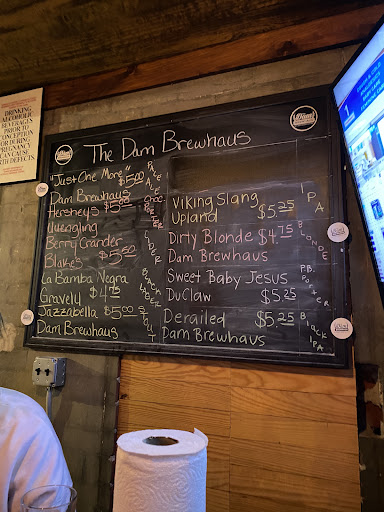 DRINKING
ALCOHOLIC
BEVERAGES
PRIOR TO
CONCEPTION
OR DURING
PREGNANCY
CAN CAUSE
BIRTH DEFECTS
The Dam Brewhaus
"Just One More" $5.00 PALE ALE
Dam Brewhaus
Hersheys $5.50 Choc. PORTER
Yuengling
Berry Grander $5.50 CIDER
Blake's
La Bamba Negra $4.75 BLACK LAGER
Gravely
Jazzabella $5.00 STOUT
Dam Brewhaus
Viking Slang $5.25 IPA
Upland
Dirty Blonde $4.75 BLONDE
Dam Brewhaus
Sweet Baby Jesus P.B. PORTER
DuClaw $5.25
Derailed $5.25 Black IPA
Dam Brewhaus